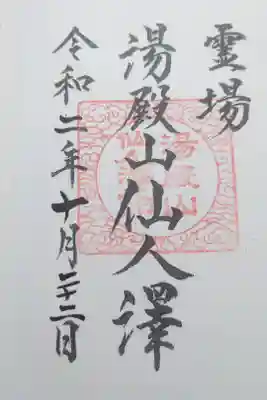 霊場
湯殿山仙人澤
令和二年十月二十二日